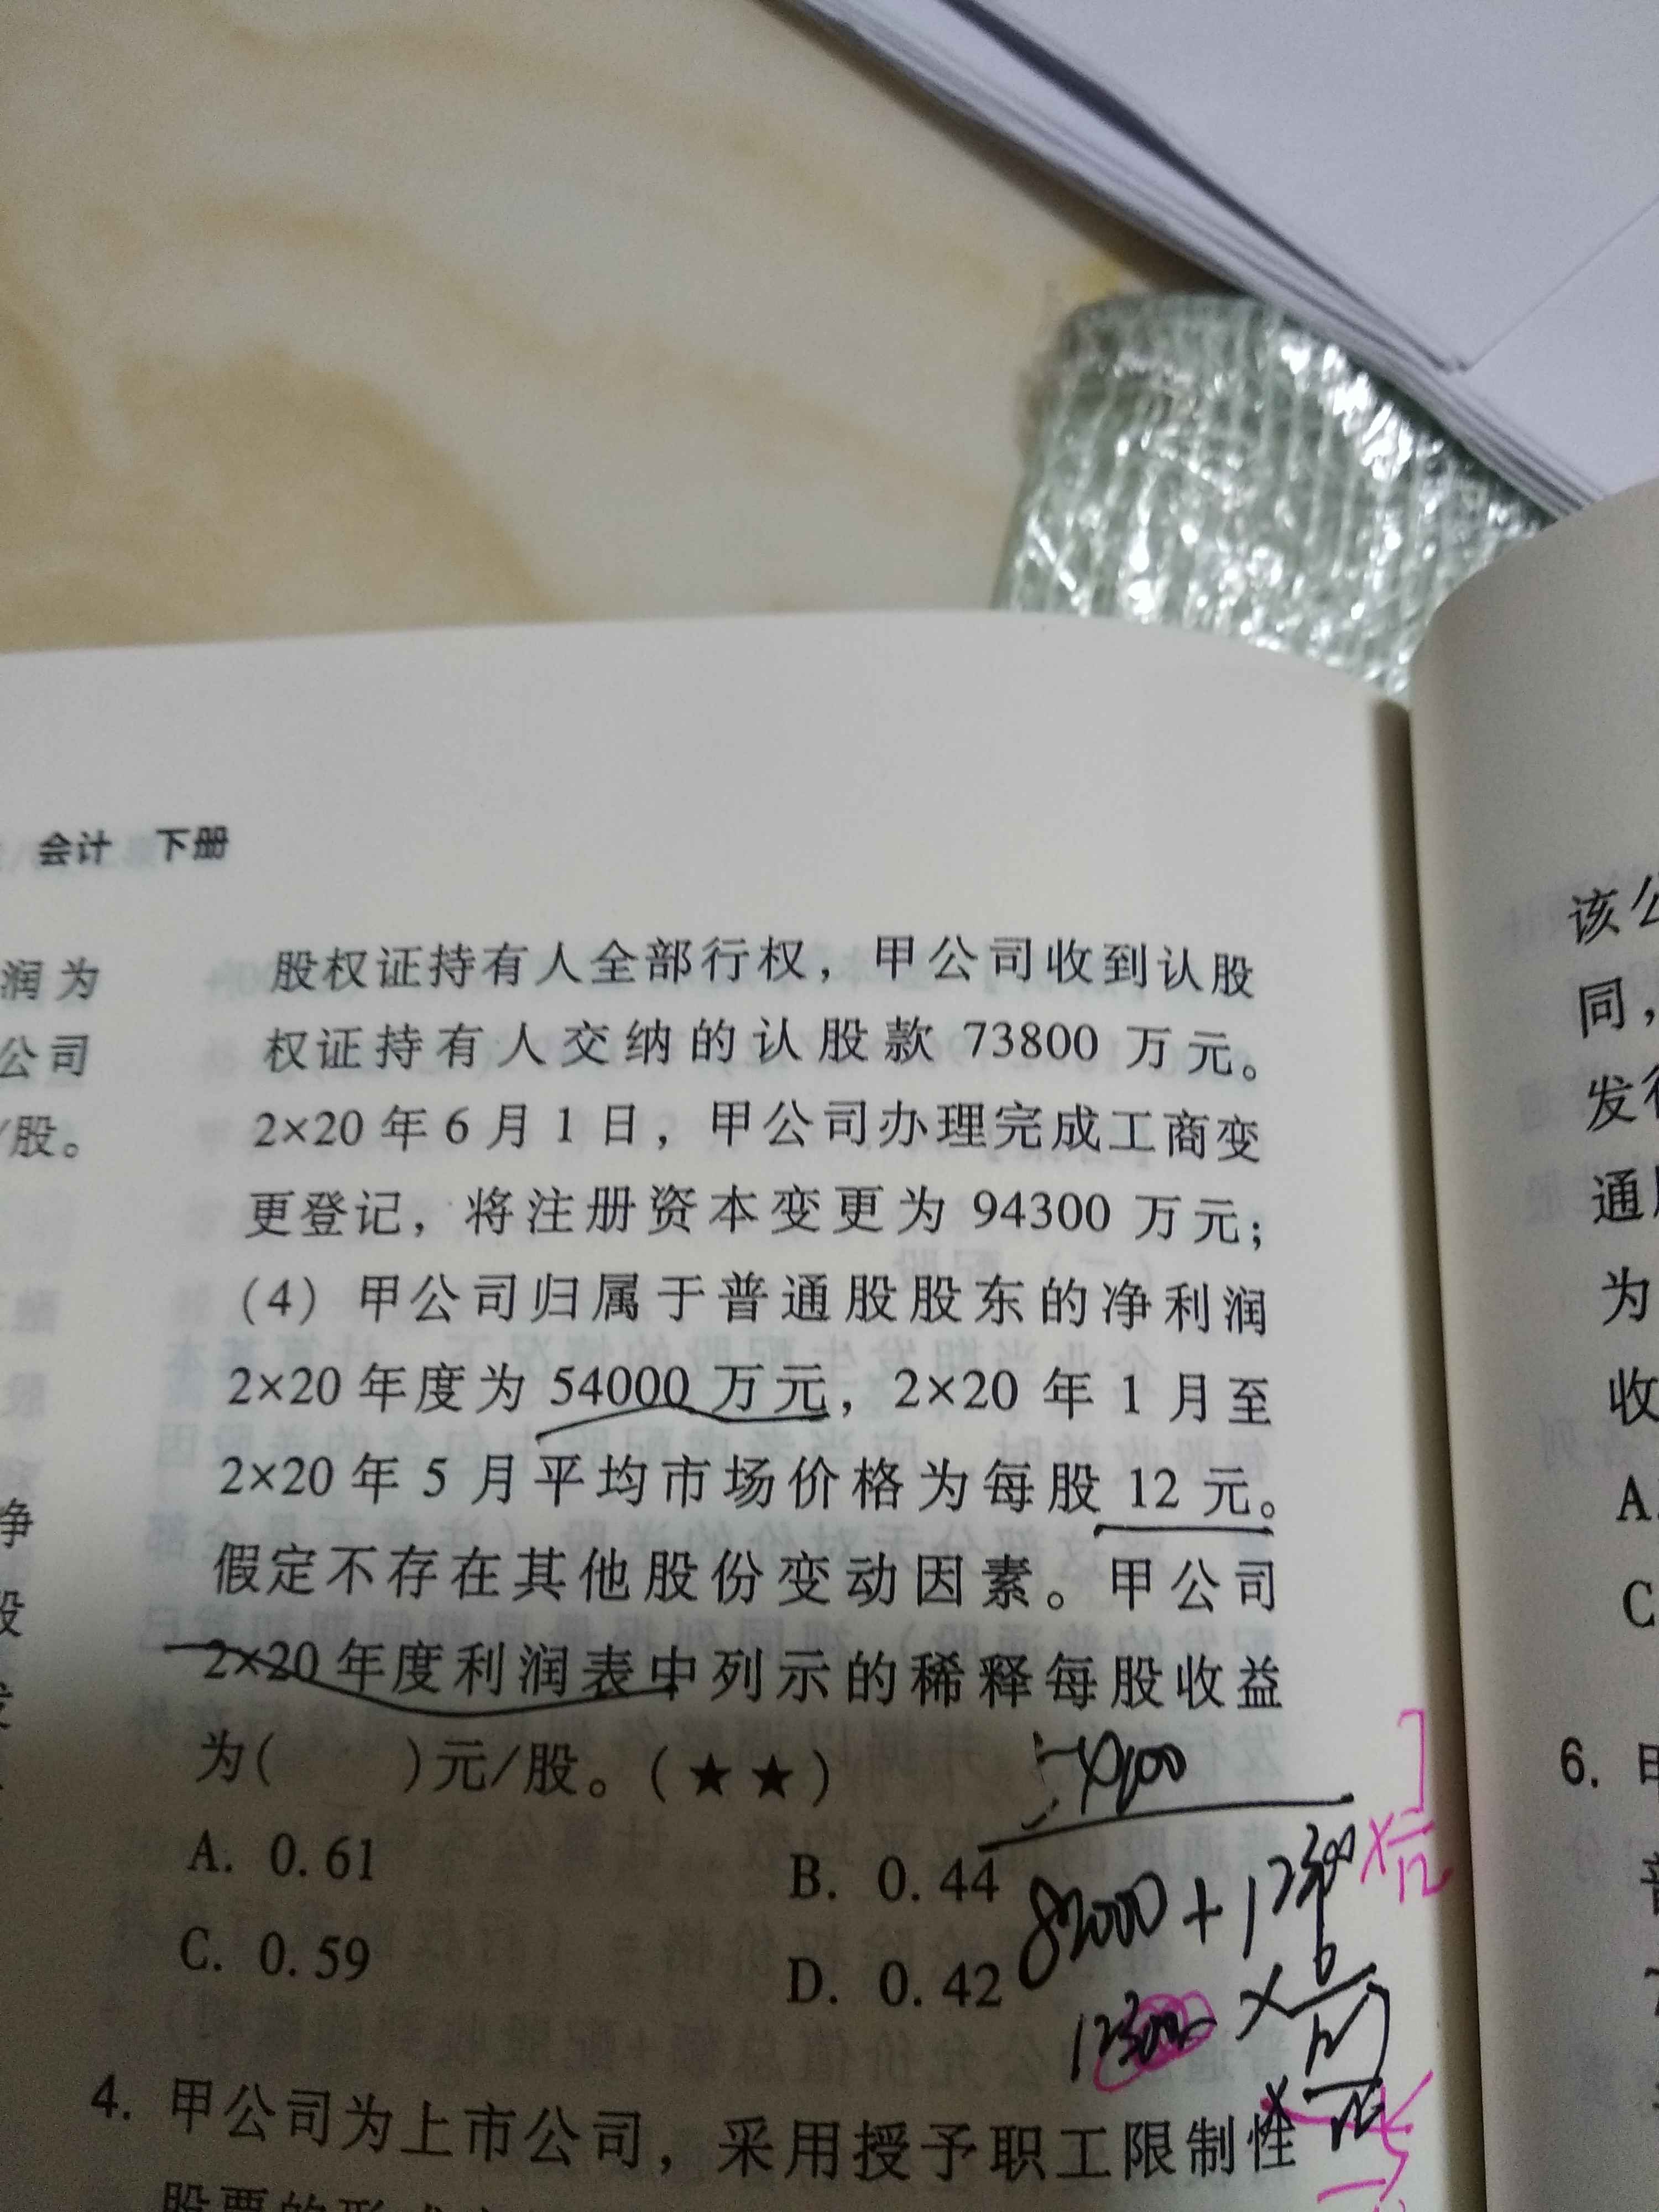 会计 下册
润为
公司
/股。
净
股
股权证持有人全部行权，甲公司收到认股
权证持有人交纳的认股款 73800 万元。
2×20 年 6 月 1 日，甲公司办理完成工商变
更登记，将注册资本变更为 94300 万元；
(4) 甲公司归属于普通股股东的净利润
2×20 年度为 54000 万元，2×20 年 1 月至
2×20 年 5 月平均市场价格为每股 12 元。
假定不存在其他股份变动因素。甲公司
2×20 年度利润表中列示的稀释每股收益
为( )元/股。(★★)
A. 0.61 B. 0.44
C. 0.59 D. 0.42
54000
82000 + 12300
12300
4. 甲公司为上市公司，采用授予职工限制性
股票的形式
该公
同，
发行
通股
为
收
A.
C
6. 甲